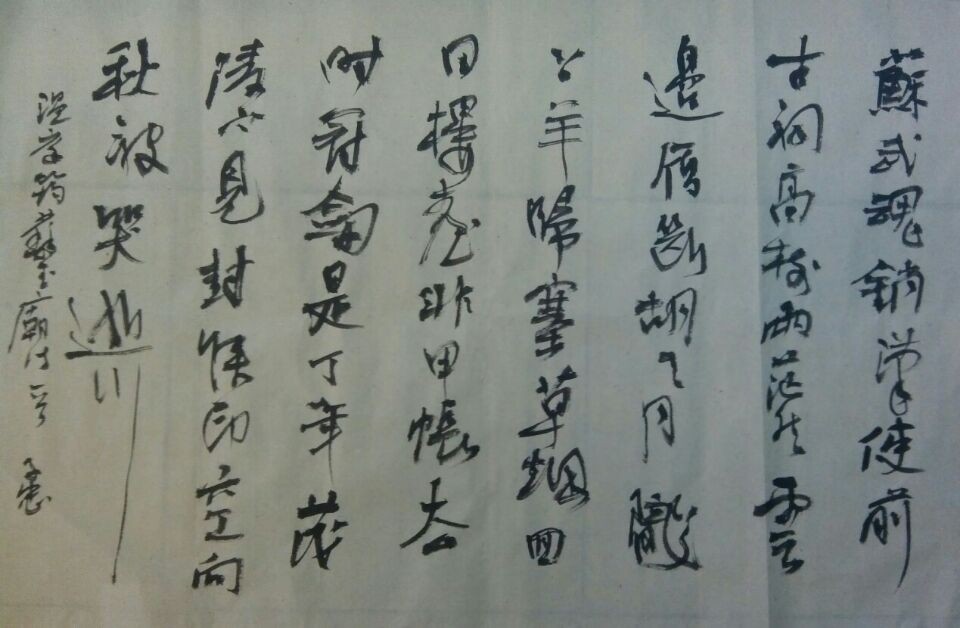 蘇武魂銷漢使前
古祠高樹兩茫然雲
邊雁斷胡天月隴
上羊歸塞草烟囬
日樓臺非甲帳去
时冠劍是丁年茂
陵不見封侯印空向
秋波哭逝川
温庭筠蘇武廟